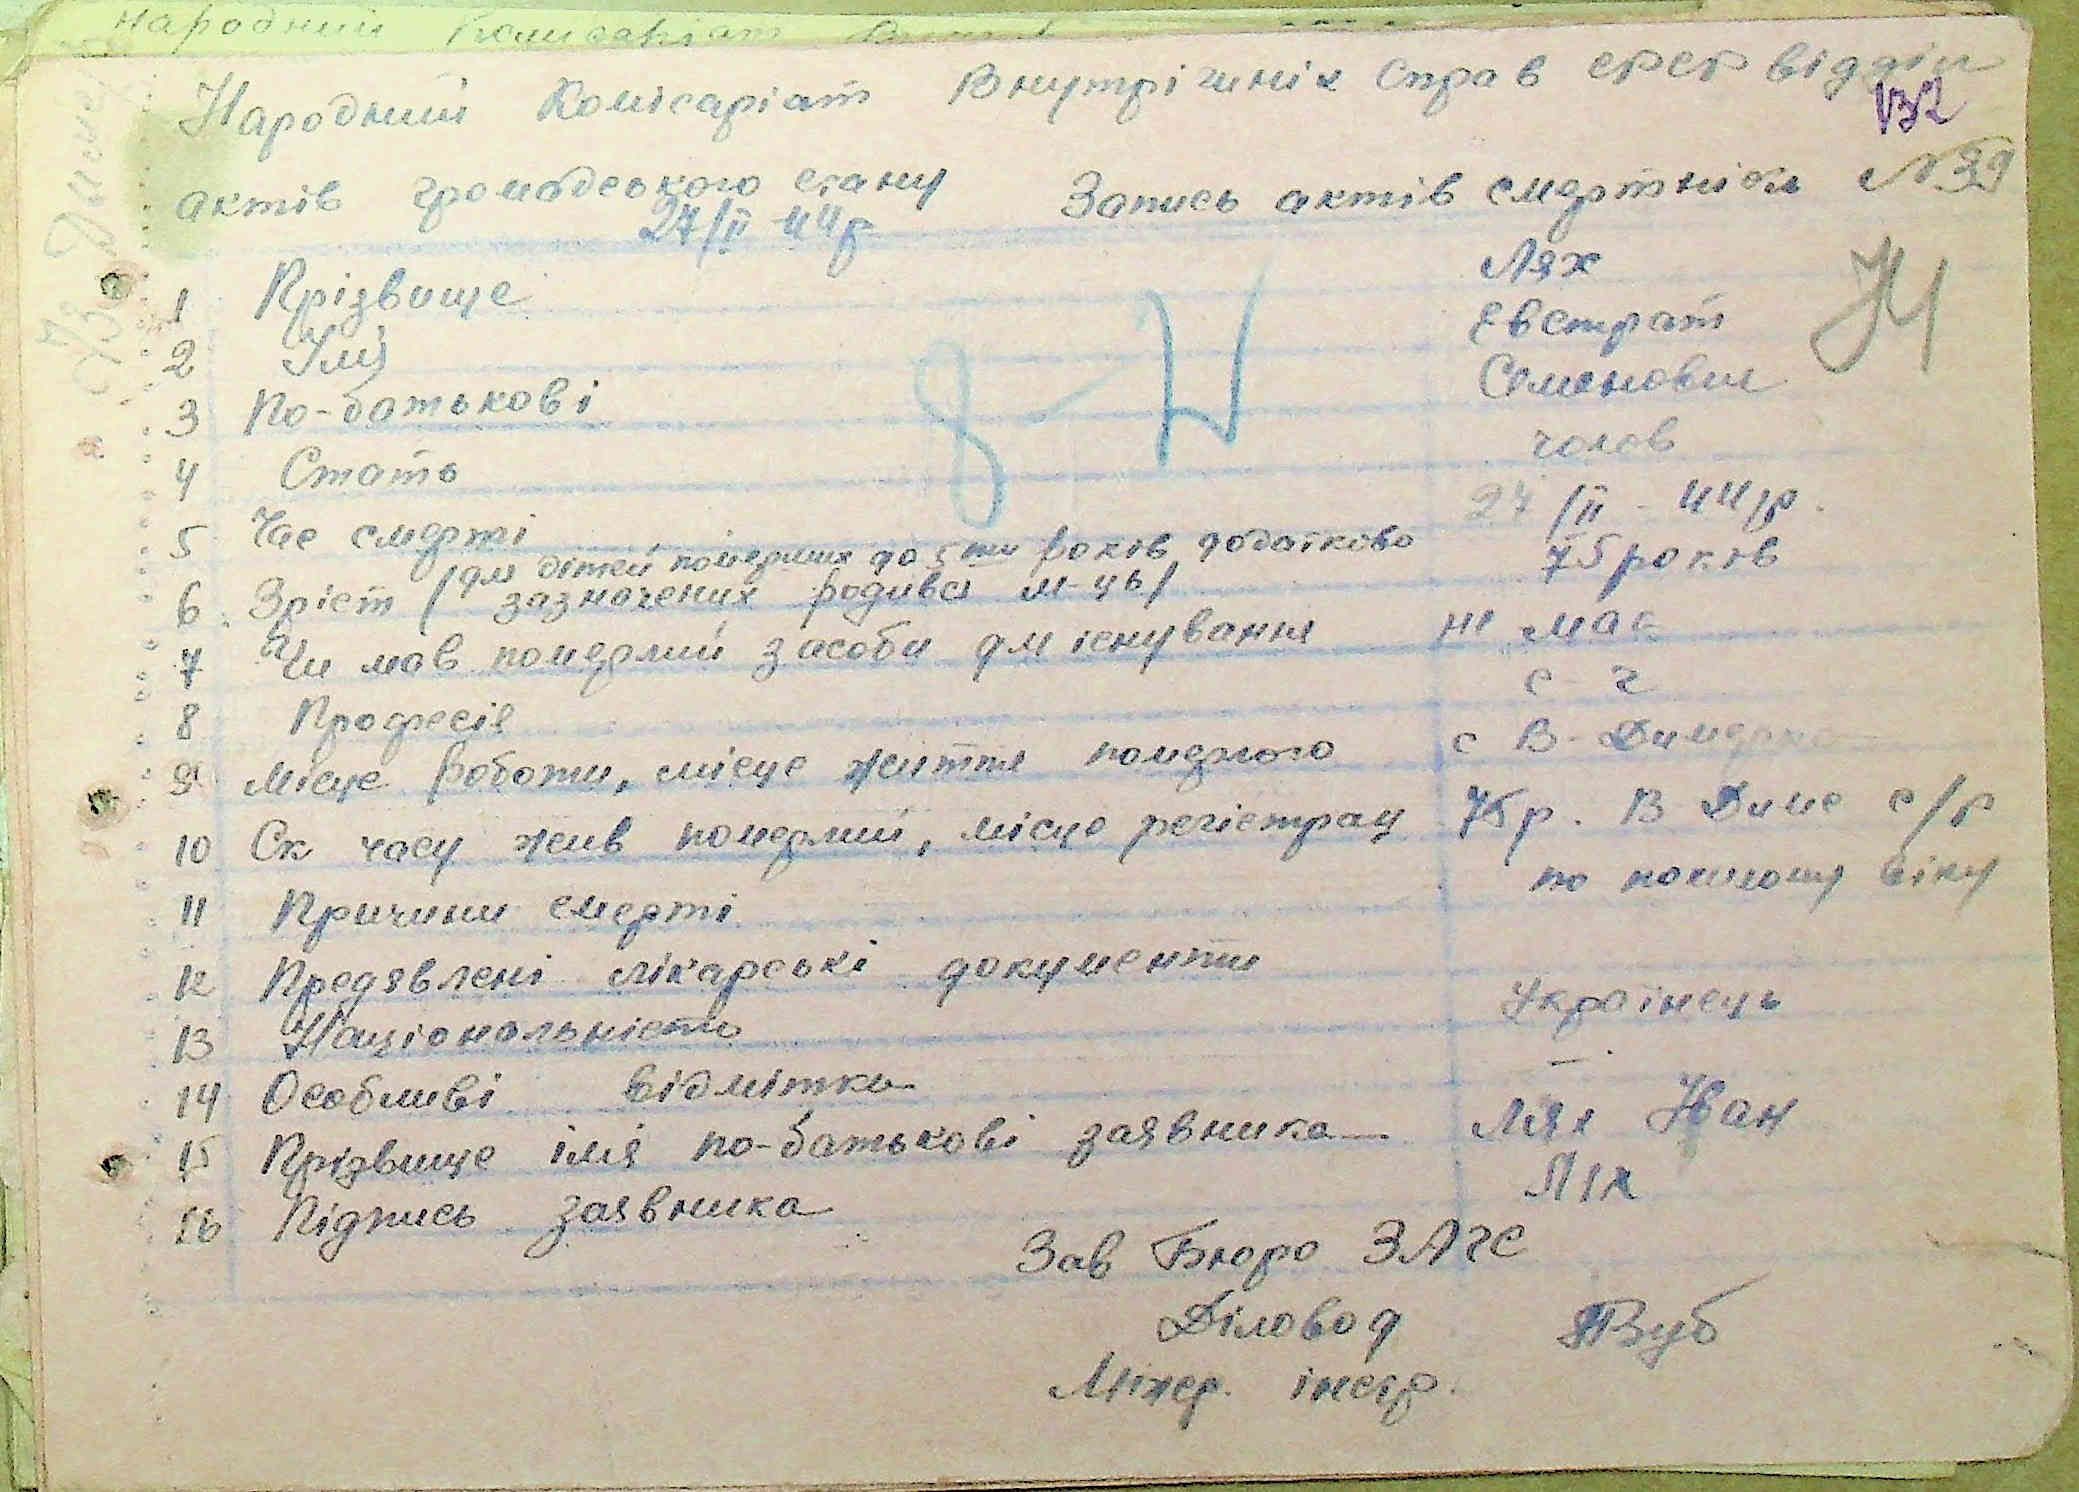 Народний Комісаріат Внутрішніх Справ СРСР відділ
132
актів громадського стану Запись актів смертність №39
27/II 44р
1 Прізвище Лях
2 Імя Евстрат
3 По-батькові Семенович
4 Стать чолов
5 Час смерті 24/II - 44р.
6 Зріст (для дітей померших до 5ти років додатково
зазначених родився м-ць/ 75 років
7 Чи мав померлий засоби для існування не мав
8 Професія с г
9 Місце роботи, місце життя померлого с В-Димерка
10 Ск часу жив померлий, місце регістрац 75р. В Диме с/р
11 Причини смерті по похилому віку
12 Предявлені лікарські документи
13 Національність Українець
14 Особливі відмітки —
15 Прізвище імя по-батькові заявника Лях Іван
16 Підпись заявника Лях
Зав Бюро ЗАГС
Діловод
інстр.